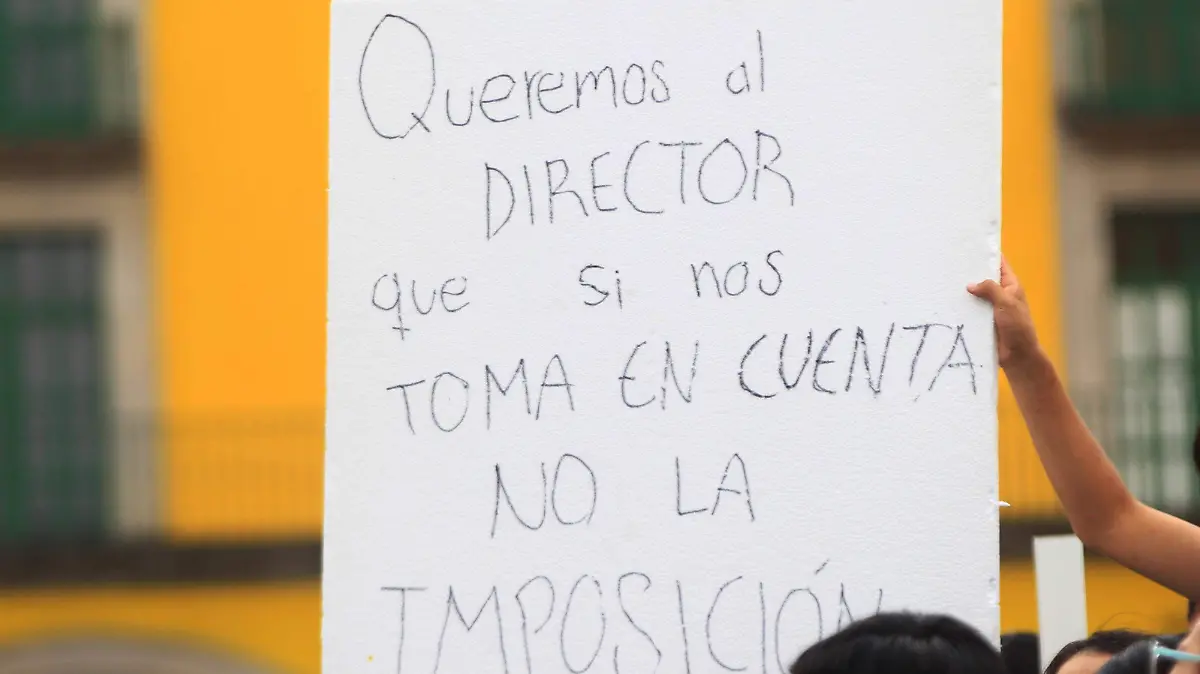 Queremos al
DIRECTOR
que si nos
TOMA EN CUENTA
NO LA
IMPOSICIÓN